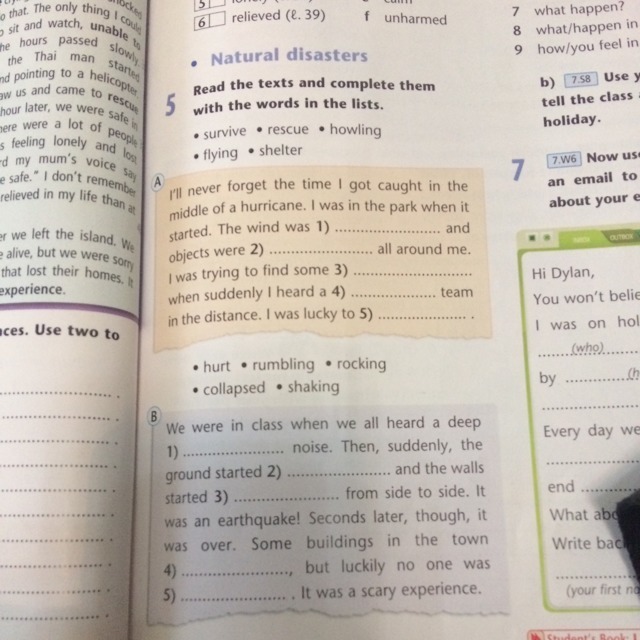 nocked
o that. The only thing I could
o sit and watch, unable to
he hours passed slowly.
the Thai man started
nd pointing to a helicopter
aw us and came to rescue
hour later, we were safe in
ere were a lot of people
s feeling lonely and lost
rd my mum's voice say
e safe." I don't remember
relieved in my life than at
er we left the island. We
e alive, but we were sorry
that lost their homes. It
experience.
nces. Use two to
5
6 relieved (ℓ. 39) f unharmed
• Natural disasters
5 Read the texts and complete them
with the words in the lists.
• survive • rescue • howling
• flying • shelter
A
I'll never forget the time I got caught in the
middle of a hurricane. I was in the park when it
started. The wind was 1) ........................ and
objects were 2) ........................ all around me.
I was trying to find some 3) ........................
when suddenly I heard a 4) ..................... team
in the distance. I was lucky to 5) ..................... .
• hurt • rumbling • rocking
• collapsed • shaking
B
We were in class when we all heard a deep
1) ........................ noise. Then, suddenly, the
ground started 2) ........................ and the walls
started 3) ........................ from side to side. It
was an earthquake! Seconds later, though, it
was over. Some buildings in the town
4) ........................, but luckily no one was
5) ........................ . It was a scary experience.
7 what happen?
8 what/happen in
9 how/you feel in
b) 7.S8 Use y
tell the class
holiday.
7 7.W6 Now us
an email to
about your e
OUTBOX
Hi Dylan,
You won't belie
I was on hol
(who)
by ............... (h
Every day we
end ............
What abo
Write bac
(your first na
Student's Book